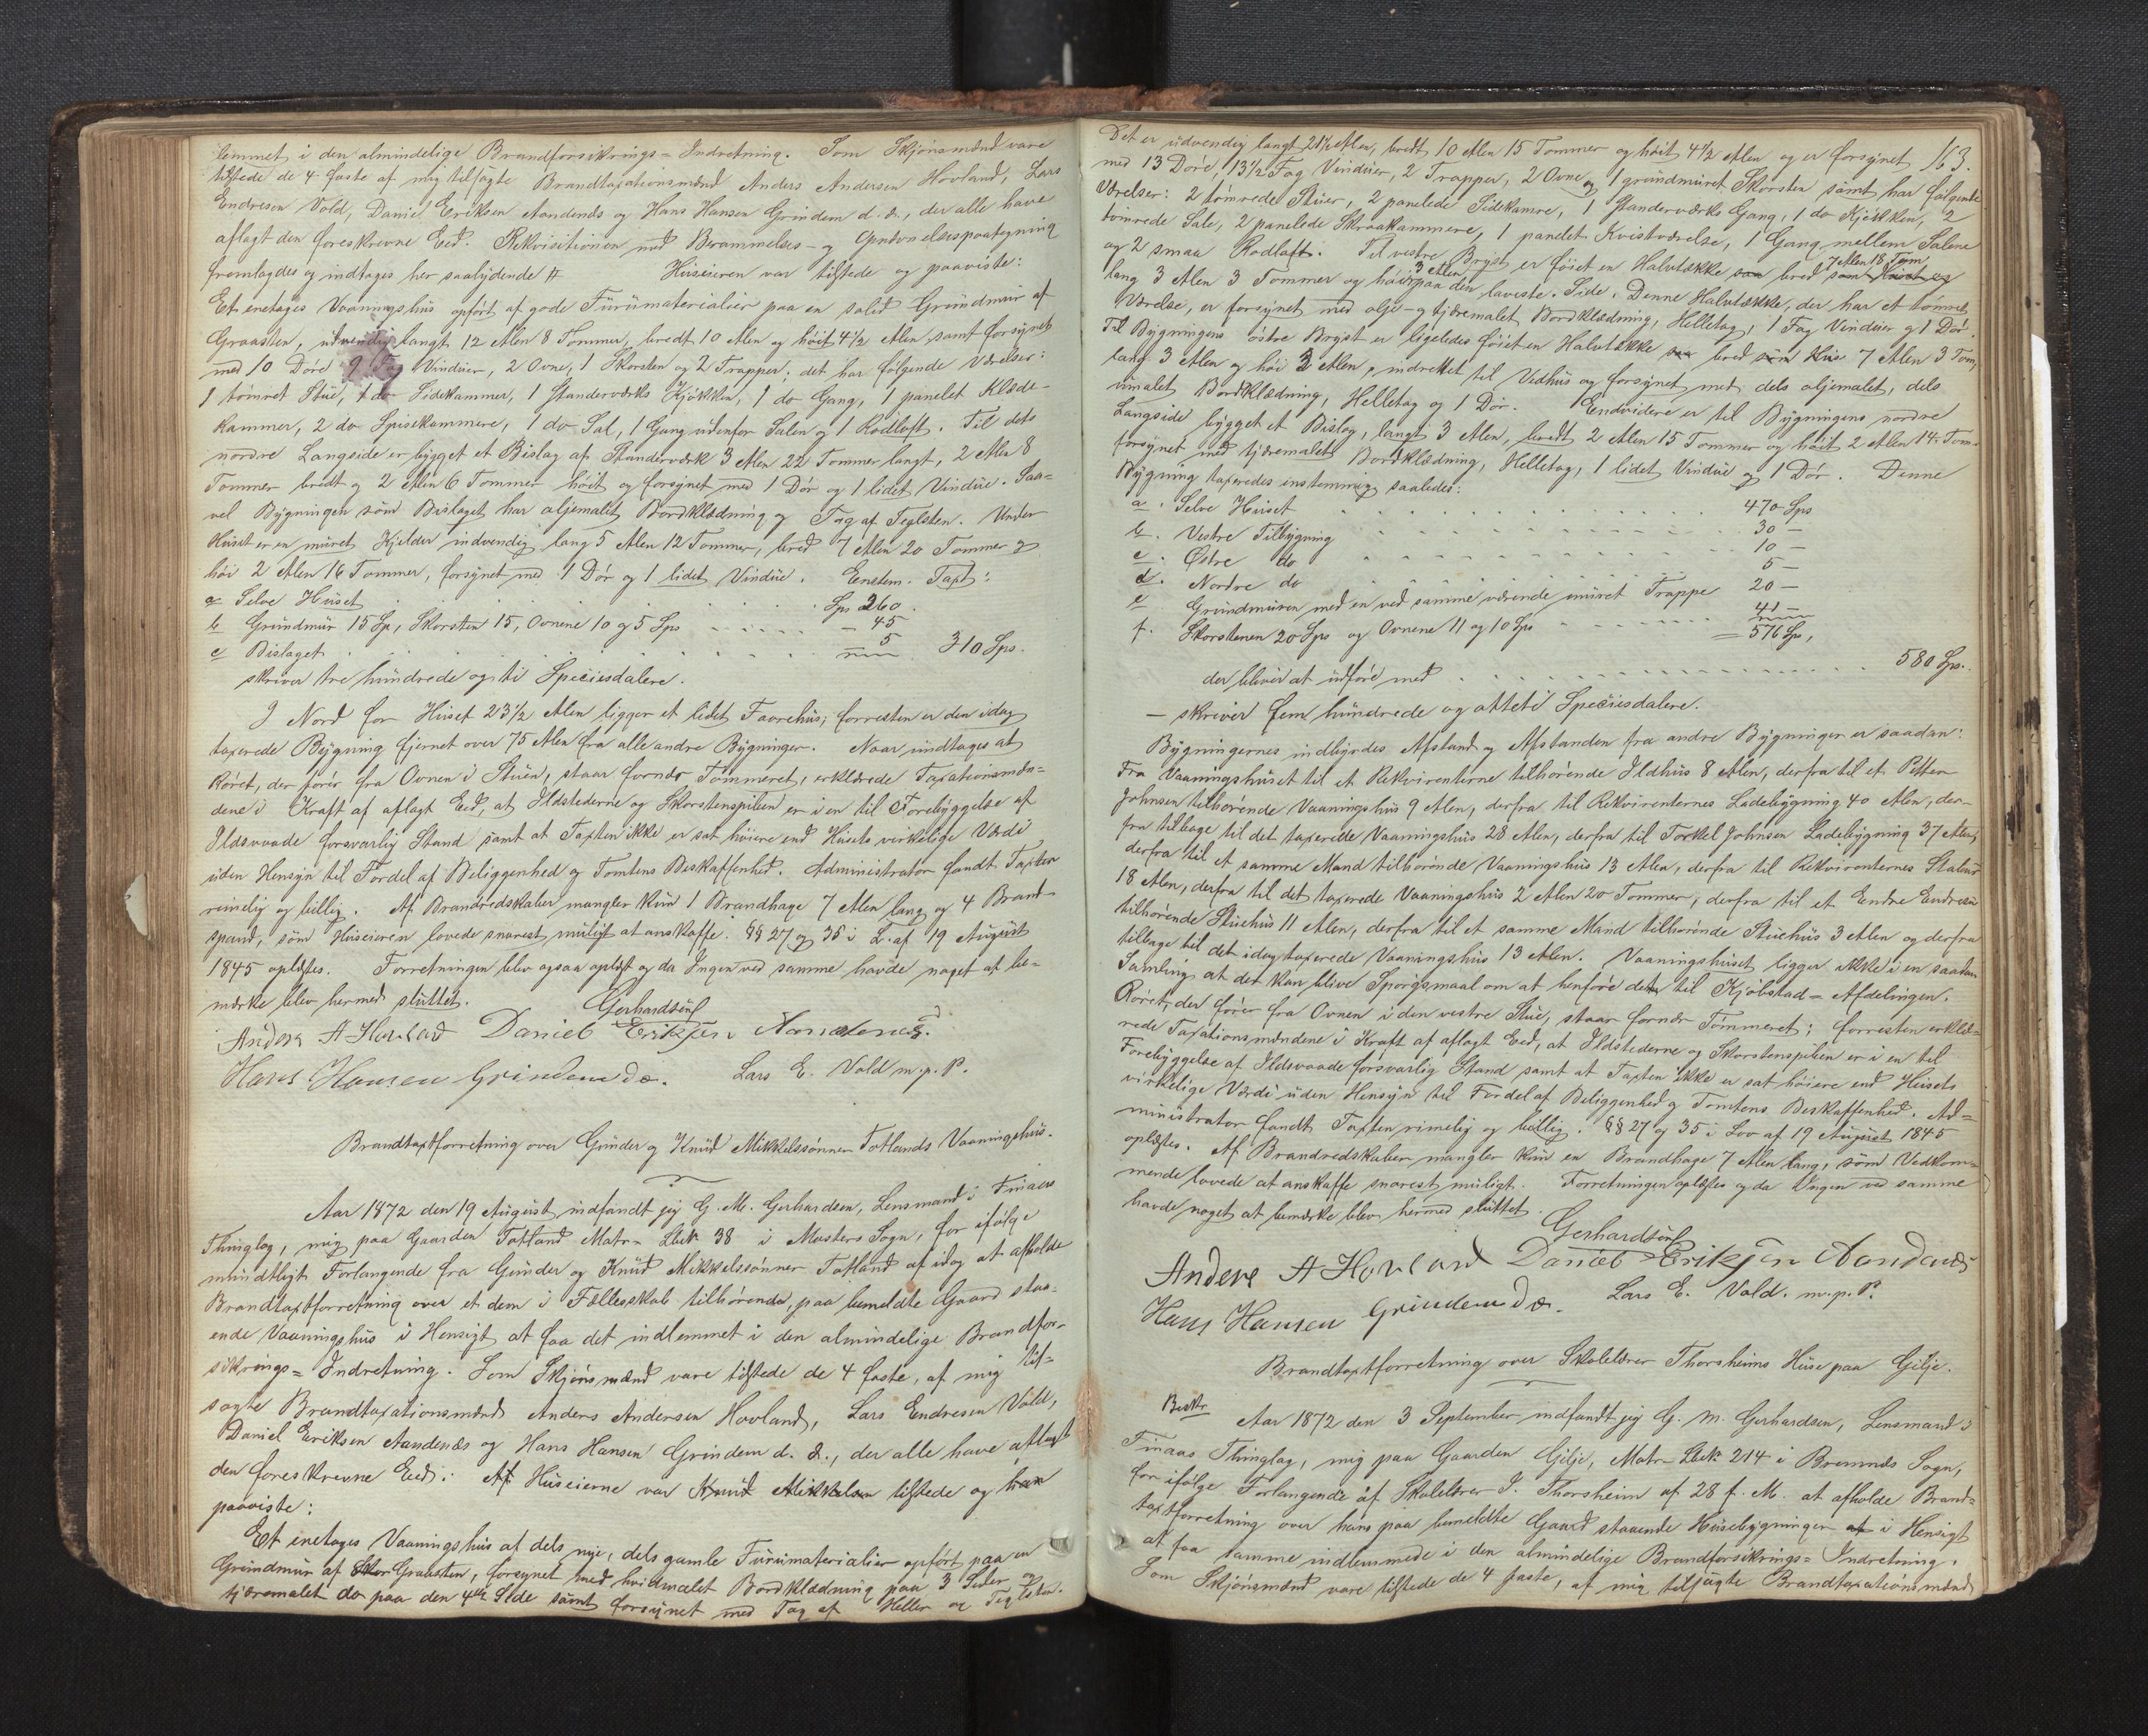 lemmet i den almindelige Brandforsikrings=Indretning. Som Skjönsmænd vare
tilstede de 4 faste af mig tilsagte Brandtaxationsmænd Anders Andersen Hovland, Lars
Endresen Vold, Daniel Eriksen Aandenæs og Hans Hansen Grindem d. æ., der alle have
aflagt den foreskrevne Eed. Rekvisitionen med Berammelses- og Opnævnelsespaategning
fremlagdes og indtages her saalydende # Huseieren var tilstede og paaviste:
Et enetages Vaaningshus opført af gode Furumaterialier paa en solid Grundmur af
Graasten, udvendig langt 12 Alen 8 Tommer, bredt 10 Alen og höit 4 1/2 Alen, samt forsynet
med 10 Döre 9 Fag Vinduer, 2 Ovne, 1 Skorsten og 2 Trapper; det har følgende Værelser:
1 tömret Stue, 1 do Sidekammer, 1 Standerværks Kjökken, 1 do Gang, 1 panelet Klæde-
kammer, 2 do Spisekammere, 1 do Sal, 1 Gang udenfor Salen og 1 Rodloft. Til dets
nordre Langside er bygget et Bislag af Standerværk 3 Alen 22 Tommer langt, 2 Alen 8
Tommer bredt og 2 Alen 6 Tommer höit og forsynet med 1 Dör og 1 lidet Vindue. Saa-
vel Bygningen som Bislaget har oljemalet Bordklædning og Tag af Teglsten. Under
Huset er en muret Kjelder indvendig lang 5 Alen 12 Tommer, bred 7 Alen 20 Tommer og
höi 2 Alen 16 Tommer, forsynet med 1 Dör og 1 lidet Vindue. Enstem. Taxt:
a Selve Huset . . . . . Sp 260.
b Grundmur 15 Sp, Skorsten 15, Ovnene 10 og 5 Sps . . . . — 45
c Bislaget . . . . . 5 310 Sps.
skriver tre hundrede og ti Speciesdalere.
I Nord for Huset 23 1/2 Alen ligger et lidet Faarehus; forresten er den idag
taxerede Bygning fjernet over 75 Alen fra alle andre Bygninger. Naar undtages at
Röret, der förer fra Ovnen i Stuen, staar fornær Tömmeret, erklærede Taxationsmæn-
dene i Kraft af aflagt Eed, at Ildstederne og Skorstenspiben er i en til Forebyggelse af
Ildsvaade forsvarlig Stand samt at Taxten ikke er sat höiere end Husets virkelige Værdi
uden Hensyn til Fordel af Beliggenhed og Tomtens Beskaffenhed. Administrator fandt Taxten
rimelig og billig. Af Brandredskaber mangler kun 1 Brandhage 7 Alen lang og 4 Brand-
spand, som Huseieren lovede snarest muligt at anskaffe. §§ 27 og 35 i L. af 19 August
1845 oplæstes. Forretningen blev ogsaa oplæst og da Ingen ved samme havde noget at be-
mærke blev hermed sluttet.
Gerhardsen
Anders A Hovland Daniel Eriksen Aandenæs.
Hans Hansen Grindem d æ. Lars E. Vold m. p. P.
Brandtaxtforretning over Gunder og Knud Mikkelssønner Totlands Vaaningshus.
Aar 1872 den 19 August indfandt jeg G. M. Gerhardsen, Lensmand i Finaas
Thinglag, mig paa Gaarden Totland Matr- Löb 38 i Mosters Sogn, for ifølge
mundtligt Forlangende fra Gunder og Knud Mikkelssønner Totland af idag at afholde
Brandtaxtforretning over et dem i Fællesskab tilhørende, paa bemeldte Gaard staa-
ende Vaaningshus i Hensigt at faa det indlemmet i den almindelige Brandfor-
sikrings=Indretning. Som Skjönsmænd vare tilstede de 4 faste, af mig til-
sagte Brandtaxationsmænd Anders Andersen Hovland, Lars Endresen Vold,
Daniel Eriksen Aandenæs og Hans Hansen Grindem d. æ., der alle have aflagt
den foreskrevne Eed. Af Huseierne var Knud Mikkelsen tilstede og han
paaviste:
Et enetages Vaaningshus af dels nye, dels gamle Furumaterialier opført paa en
Grundmur af Graasten, forsynet med hvidmalet Bordklædning paa 3 Sider og
tjæremalet do paa den 4de Side samt forsynet med Tag af Heller og Teglsten.
163.
Det er udvendig langt 21 1/2 Alen, bredt 10 Alen 15 Tommer og höit 4 1/2 Alen og er forsynet
med 13 Döre, 13 1/2 Fag Vinduer, 2 Trapper, 2 Ovne og 1 grundmuret Skorsten samt har følgende
Værelser: 2 tömrede Stuer, 2 panelede Sidekamre, 1 Standerværks Gang, 1 do Kjökken, 2
tömrede Sale, 2 panelede Skraakammere, 1 panelet Kvistværelse, 1 Gang mellem Salene
og 2 smaa Rodloft. Til vestre Bryst er föiet en Halvtække bred 7 Alen 18 Tom
lang 3 Alen 3 Tommer og höi 3 Alen paa den laveste Side. Denne Halvtække, der har et tömret
Værelse, er forsynet med olje- og tjæremalet Bordklædning, Helletag, 1 Fag Vinduer og 1 Dör.
Til Bygningens östre Bryst er ligeledes föiet en Halvtække bred 7 Alen 3 Tom,
lang 3 Alen og höi 3 Alen, indrettet til Vedhus og forsynet med dels oljemalet, dels
umalet Bordklædning, Helletag og 1 Dör. Endvidere er til Bygningens nordre
Langside bygget et Bislag, langt 3 Alen, bredt 2 Alen 15 Tommer og höit 2 Alen 14 Tom-
forsynet med tjæremalet Bordklædning, Helletag, 1 lidet Vindue og 1 Dör. Denne
Bygning taxeredes enstemmig saaledes:
a. Selve Huset . . . . . 470 Sps
b. Vestre Tilbygning . . . . . 30 —
c. Østre do . . . . . 10 —
d. Nordre do . . . . . 5 —
e Grundmuren med en ved samme værende muret Trappe 20 —
f. Skorstenen 20 Sps og Ovnene 11 og 10 Sps . . . . 41 —
= 576 Sp,
der bliver at udföre med . . . . . 580 Sps.
— skriver fem hundrede og otteti Speciesdalere.
Bygningernes indbyrdes Afstand og Afstanden fra andre Bygninger er saadan:
Fra Vaaningshuset til et Rekvirenterne tilhörende Ildhus 8 Alen, derfra til et Petter
Johnsen tilhörende Vaaningshus 9 Alen, derfra til Rekvirenternes Ladebygning 40 Alen, der-
fra tilbage til det taxerede Vaaningshus 28 Alen, derfra til Torkel Johnsen Ladebygning 37 Alen,
derfra til et samme Mand tilhörende Vaaningshus 13 Alen, derfra til Rekvirenternes Stabur
18 Alen, derfra til det taxerede Vaaningshus 2 Alen 20 Tommer, derfra til et Endre Endresen
tilhörende Stuehus 11 Alen, derfra til et samme Mand tilhörende Stuehus 3 Alen og derfra
tilbage til det idag taxerede Vaaningshus 13 Alen. Vaaningshuset ligger ikke i en saadan
Samling at det kan blive Spörgsmaal om at henföre det til Kjöbstad=Afdelingen.
Röret, der förer fra Ovnen i den vestre Stue, staar fornær Tömmeret; forresten erklæ-
rede Taxationsmændene i Kraft af aflagt Eed, at Ildstederne og Skorstenspiben er i en til
Forebyggelse af Ildsvaade forsvarlig Stand samt at Taxten ikke er sat höiere end Husets
virkelige Værdi uden Hensyn til Fordel af Beliggenhed og Tomtens Beskaffenhed. Ad-
ministrator fandt Taxten rimelig og billig. §§ 27 og 35 i Lov af 19 August 1845
oplæstes. Af Brandredskaber mangler kun en Brandhage 7 Alen lang, som Vedkom-
mende lovede at anskaffe snarest muligt. Forretningen oplæstes og da Ingen ved samme
havde noget at bemærke blev hermed sluttet.
Gerhardsen
Anders A Hovland Daniel Eriksen Aandenæs
Hans Hansen Grindem d æ. Lars E. Vold. m. p. P.
Brandtaxtforretning over Skolelærer Thorsheims Huse paa Gilje.
Beskr
Aar 1872 den 3 September indfandt jeg G. M. Gerhardsen, Lensmand i
Finaas Thinglag, mig paa Gaarden Gilje, Matr- Löb 214 i Bremnæs Sogn,
for ifølge Forlangende af Skolelærer J. Thorsheim af 28 f. M. at afholde Brand-
taxtforretning over hans paa bemeldte Gaard staaende Husebygninger i Hensigt
at faa samme indlemmede i den almindelige Brandforsikrings=Indretning.
Som Skjönsmænd vare tilstede de 4 faste, af mig tilsagte Brandtaxationsmænd